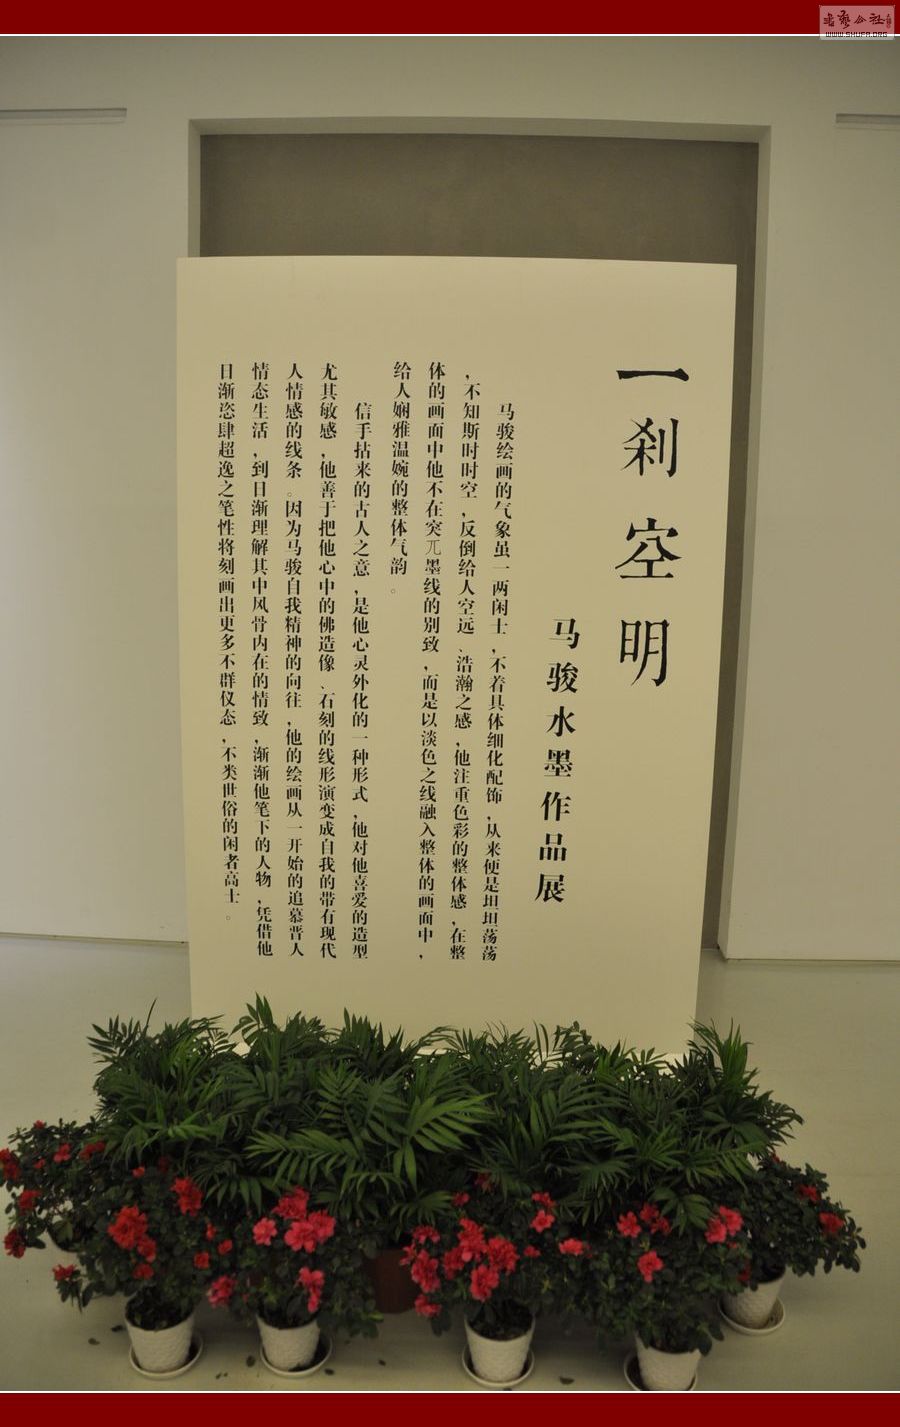 一刹空明
马骏水墨作品展
马骏绘画的气象虽一两闲士，不着具体细化配饰，从来便是坦坦荡荡
，不知斯时时空，反倒给人空远、浩瀚之感，他注重色彩的整体感，在整
体的画面中他不在突兀墨线的别致，而是以淡色之线融入整体的画面中，
给人娴雅温婉的整体气韵。
信手拈来的古人之意，是他心灵外化的一种形式，他对他喜爱的造型
尤其敏感，他善于把他心中的佛造像、石刻的线形演变成自我的带有现代
人情感的线条。因为马骏自我精神的向往，他的绘画从一开始的追慕晋人
情态生活，到日渐理解其中风骨内在的情致，渐渐他笔下的人物，凭借他
日渐恣肆超逸之笔性将刻画出更多不群仪态，不类世俗的闲者高士。
WWW.SHUFA.ORG